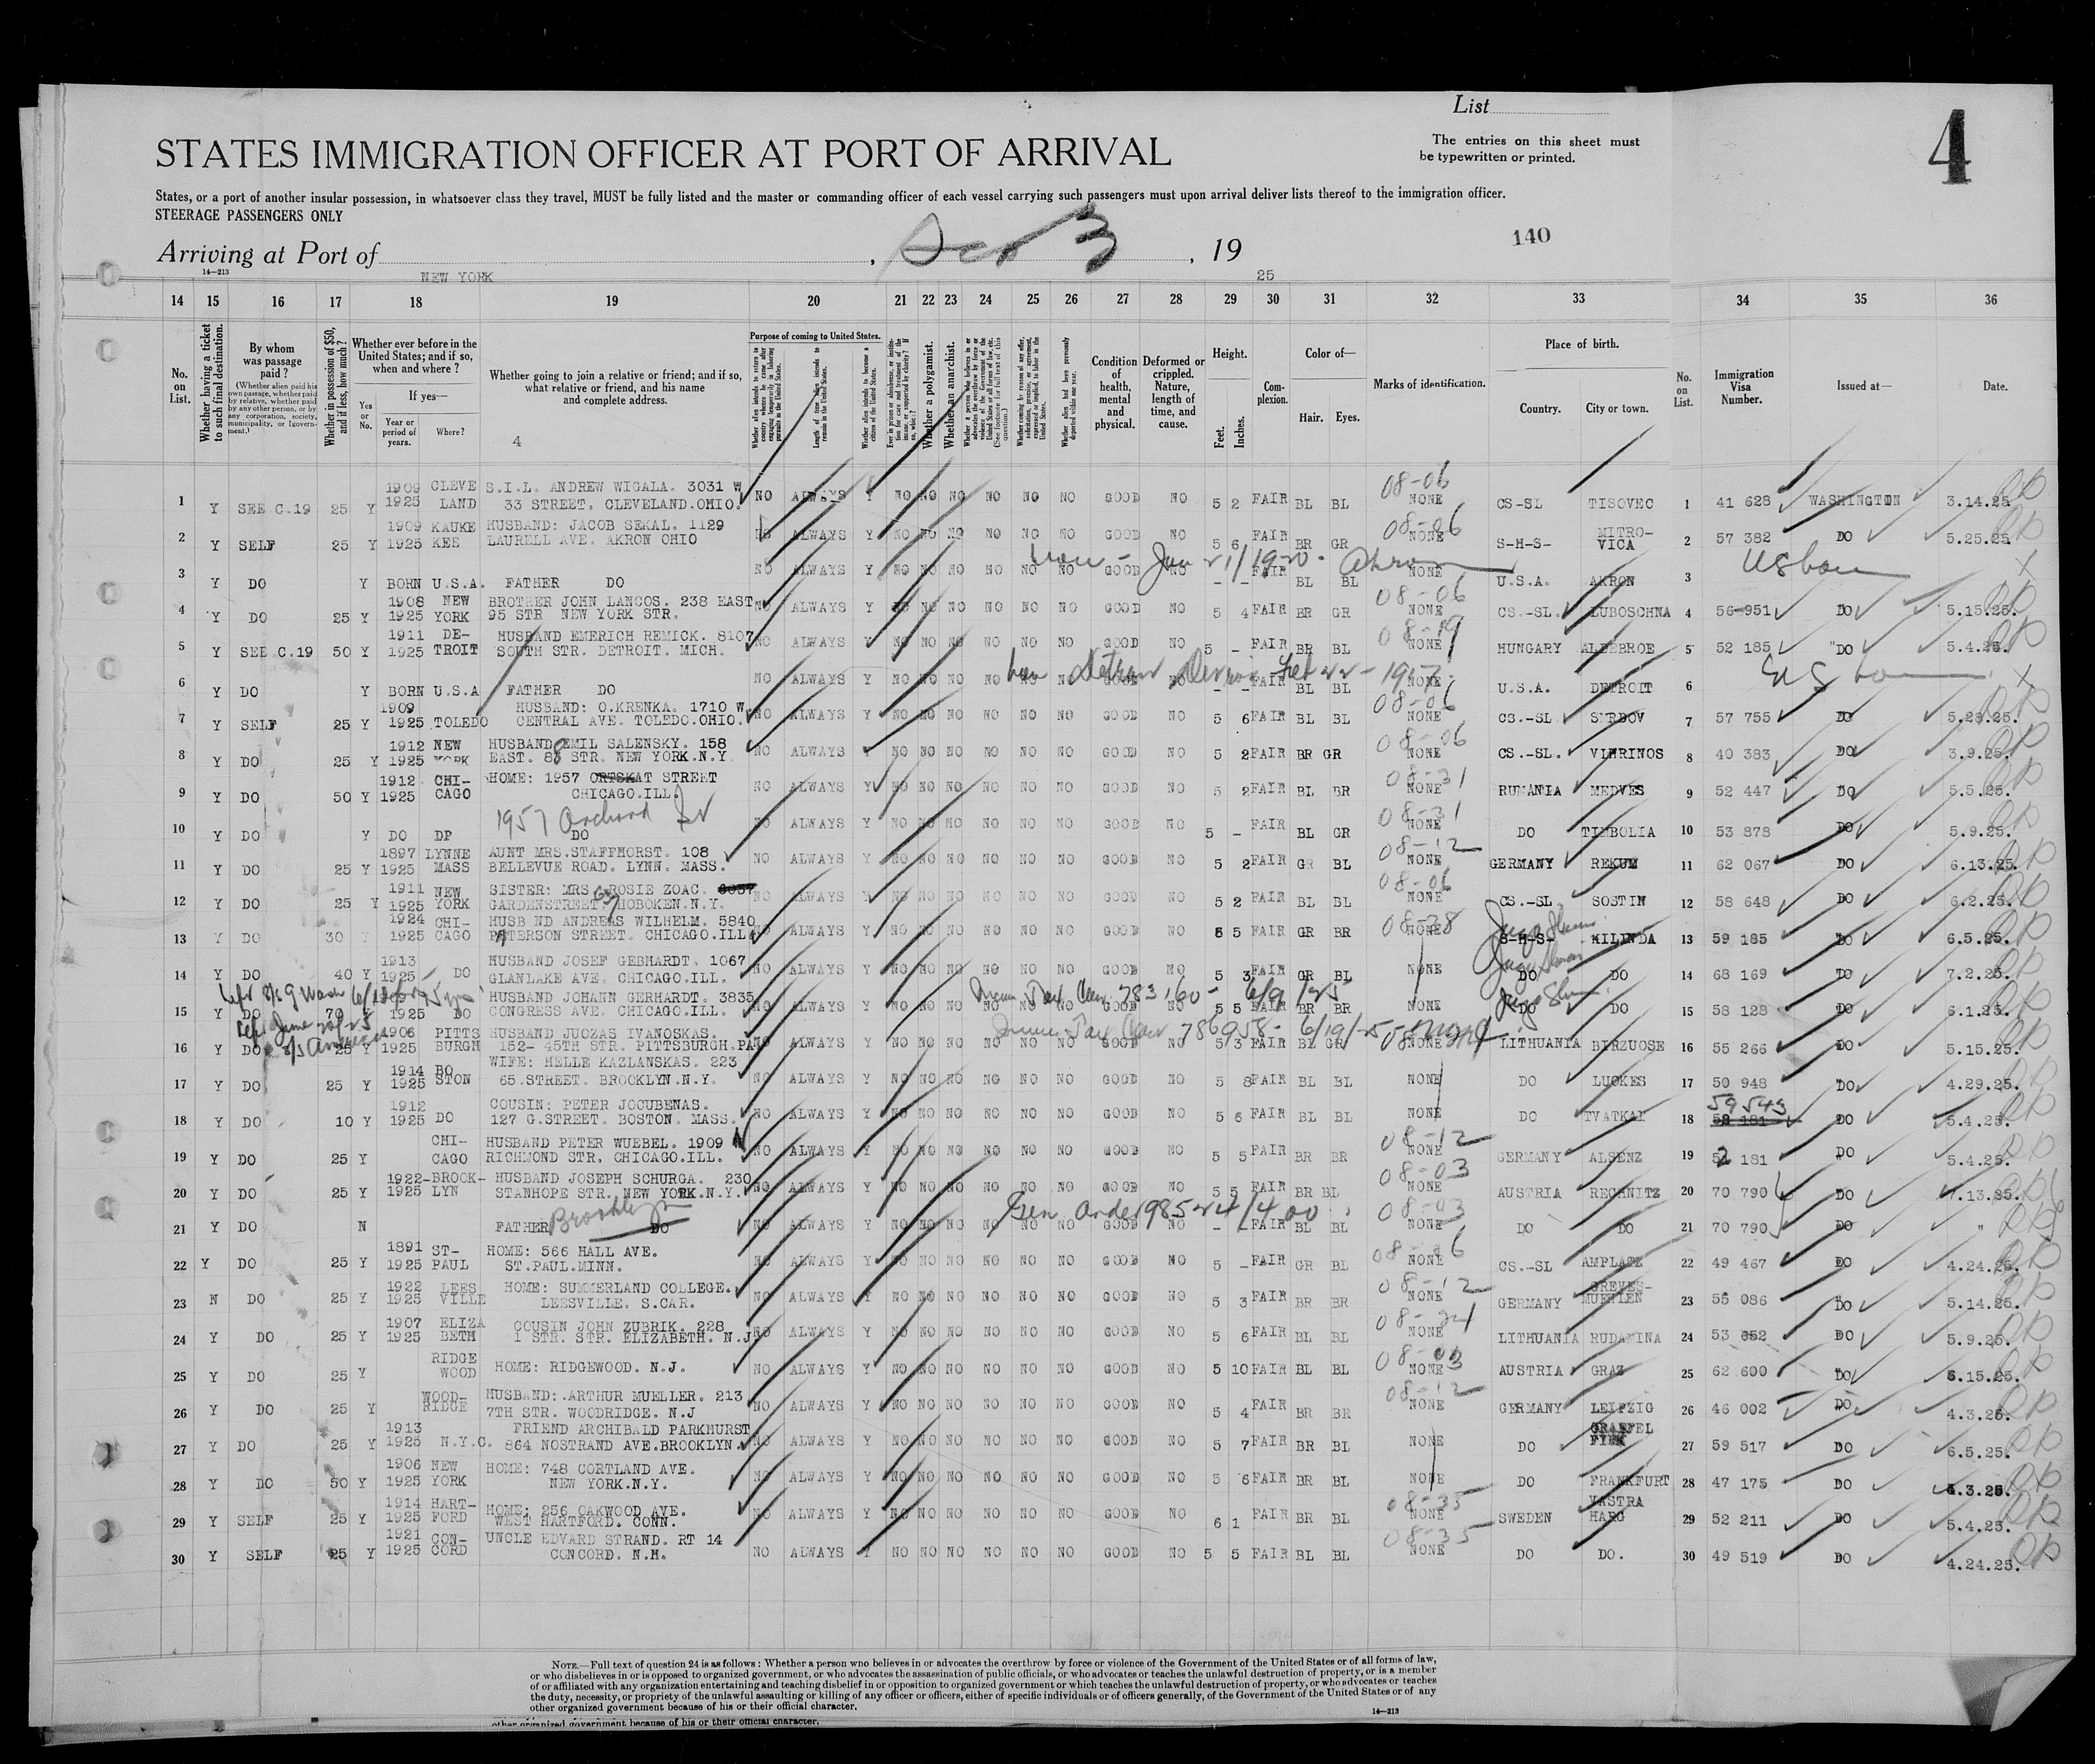 List
4
STATES IMMIGRATION OFFICER AT PORT OF ARRIVAL
The entries on this sheet must
be typewritten or printed.
States, or a port of another insular possession, in whatsoever class they travel, MUST be fully listed and the master or commanding officer of each vessel carrying such passengers must upon arrival deliver lists thereof to the immigration officer.
STEERAGE PASSENGERS ONLY
Arriving at Port of , 3 , 19 140
14—213
NEW YORK 25
14 15 16 17 18 19 20 21 22 23 24 25 26 27 28 29 30 31 32 33 34 35 36
No. on List.
Whether having a ticket to such final destination.
By whom was passage paid?
(Whether alien paid his own passage, whether paid by relative, whether paid by any other person, or by any corporation, society, municipality, or [govern-ment.)
Whether in possession of $50, and if less, how much?
Whether ever before in the United States; and if so, when and where?
Yes or No.
If yes—
Year or period of years.
Where?
Whether going to join a relative or friend; and if so, what relative or friend, and his name and complete address.
4
Purpose of coming to United States.
Whether a polygamist.
Whether an anarchist.
Condition of health, mental and physical.
Deformed or crippled. Nature, length of time, and cause.
Height.
Feet. Inches.
Com-plexion.
Color of—
Hair. Eyes.
Marks of identification.
Place of birth.
Country. City or town.
No. on List.
Immigration Visa Number.
Issued at—
Date.
1 Y SEE C.19 25 Y 1909 1925 CLEVE LAND S.I.L. ANDREW WIGALA. 3031 W 33 STREET. CLEVELAND.OHIO. NO ALWAYS Y NO NO NO NO NO NO GOOD NO 5 2 FAIR BL BL 08-06 NONE CS-SL TISOVEC 1 41 628 WASHINGTON 3.14.25
2 Y SELF 25 Y 1909 1925 KAUKE KEE HUSBAND: JACOB SEKAL. 1129 LAURELL AVE. AKRON OHIO NO ALWAYS Y NO NO NO NO NO NO GOOD NO 5 6 FAIR BR GR NONE S-H-S- MITRO-VICA 2 57 382 DO 5.25.25
3 Y DO Y BORN U.S.A. FATHER DO NO ALWAYS Y NO NO NO NO NO NO GOOD NO - - FAIR BL BL NONE U.S.A. AKRON 3 US born X
4 Y DO 25 Y 1908 1925 NEW YORK BROTHER JOHN LANCOS. 238 EAST 95 STR NEW YORK STR. NO ALWAYS Y NO NO NO NO NO NO GOOD NO 5 4 FAIR BR GR 08-06 NONE CS.-SL. LUBOSCHNA 4 56-951 DO 5.15.25.
5 Y SEE C.19 50 Y 1911 1925 DE-TROIT HUSBAND EMERICH REMICK. 8107 SOUTH STR. DETROIT. MICH. NO ALWAYS Y NO NO NO NO NO NO GOOD NO 5 - FAIR BR BL 08-19 NONE HUNGARY ALDEBROE 5 52 185 DO 5.4.25
6 Y DO Y BORN U.S.A FATHER DO NO ALWAYS Y NO NO NO NO NO NO GOOD NO - - FAIR BL BL NONE U.S.A. DETROIT 6 US born X
7 Y SELF 25 Y 1909 1925 TOLEDO HUSBAND: O.KRENKA. 1710 W. CENTRAL AVE. TOLEDO.OHIO. NO ALWAYS Y NO NO NO NO NO NO GOOD NO 5 6 FAIR BL BL 08-06 NONE CS.-SL. SYRBOV 7 57 755 DO 5.28.25.
8 Y DO 25 Y 1912 1925 NEW YORK HUSBAND EMIL SALENSKY. 158 EAST. 88 STR. NEW YORK.N.Y. NO ALWAYS NO NO NO NO NO NO GOOD NO 5 2 FAIR BR GR 08-06 NONE CS.-SL. VIHRINOS 8 40 383 DO 3.9.25.
9 Y DO 50 Y 1912 1925 CHI-CAGO HOME: 1957 ORTSKAT STREET CHICAGO.ILL. NO ALWAYS Y NO NO NO NO NO NO GOOD NO 5 2 FAIR BL BR 08-31 NONE RUMANIA MEDVES 9 52 447 DO 5.5.25.
1957 Orchard
10 Y DO Y DO DP DO NO ALWAYS Y NO NO NO NO NO NO GOOD NO 5 - FAIR BL GR 08-31 NONE DO TIMBOLIA 10 53 878 DO 5.9.25.
11 Y DO 25 Y 1897 1925 LYNNE MASS AUNT MRS.STAFFHORST. 108 BELLEVUE ROAD. LYNN. MASS. NO ALWAYS Y NO NO NO NO NO NO GOOD NO 5 2 FAIR GR BL 08-12 NONE GERMANY REKUM 11 62 067 DO 6.13.25.
12 Y DO 25 Y 1911 1925 NEW YORK SISTER: MRS. ROSIE ZOAC. GARDENSTREET HOBOKEN.N.Y. NO ALWAYS Y NO NO NO NO NO NO GOOD NO 5 2 FAIR BL BL 08-06 NONE CS.-SL SOSTIN 12 58 648 DO 6.2.25.
13 Y DO 30 Y 1924 1925 CHI-CAGO HUSB ND ANDREAS WILHELM. 5840 PETERSON STREET. CHICAGO.ILL NO ALWAYS Y NO NO NO NO NO NO GOOD NO 5 5 FAIR GR BR 08-28 NONE S-H-S- KILINDA 13 59 185 DO 6.5.25.
14 Y DO 40 Y 1913 1925 DO HUSBAND JOSEF GEBHARDT. 1067 GLANLAKE AVE. CHICAGO.ILL. NO ALWAYS Y NO NO NO NO NO NO GOOD NO 5 3 FAIR GR BL NONE DO DO 14 68 169 DO 7.2.25.
15 Y DO 70 Y 1925 DO HUSBAND JOHANN GERHARDT. 3835 CONGRESS AVE. CHICAGO.ILL. NO ALWAYS Y NO NO NO NO NO NO GOOD NO 5 5 FAIR BR BR NONE DO DO 15 58 128 DO 6.1.25.
16 Y DO 25 Y 1906 1925 PITTS BURGH HUSBAND JUOZAS IVANOSKAS. 152- 45TH STR. PITTSBURGH.PA NO ALWAYS Y NO NO NO NO NO NO GOOD NO 5 3 FAIR BL GR NONE LITHUANIA BIRZUOSE 16 55 266 DO 5.15.25.
17 Y DO 25 Y 1914 1925 BO STON WIFE: HELLE KAZLANSKAS. 223 65.STREET. BROOKLYN.N.Y. NO ALWAYS Y NO NO NO NO NO NO GOOD NO 5 8 FAIR BL BL NONE DO LUOKES 17 50 948 DO 4.29.25.
18 Y DO 10 Y 1912 1925 DO COUSIN: PETER JOCUBENAS. 127 G.STREET. BOSTON. MASS. NO ALWAYS Y NO NO NO NO NO NO GOOD NO 5 6 FAIR BL BL NONE DO TVATKAI 18 59 543 DO 5.4.25.
19 Y DO 25 Y CHI-CAGO HUSBAND PETER WUEBEL. 1909 N RICHMOND STR. CHICAGO.ILL. NO ALWAYS Y NO NO NO NO NO NO GOOD NO 5 5 FAIR BR BR 08-12 NONE GERMANY ALSENZ 19 52 181 DO 5.4.25.
20 Y DO 25 Y 1922-1925 BROOK-LYN HUSBAND JOSEPH SCHURGA. 230 STANHOPE STR. NEW YORK.N.Y. NO ALWAYS Y NO NO NO NO NO NO GOOD NO 5 5 FAIR BR BL 08-03 NONE AUSTRIA RECHNITZ 20 70 790 DO 7.13.25.
21 Y DO N FATHER DO Brooklyn NO ALWAYS Y NO NO NO NO NO NO GOOD NO - FAIR BL BL 08-03 NONE DO DO 21 70 790 DO "
22 Y DO 25 Y 1891 1925 ST-PAUL HOME: 566 HALL AVE. ST.PAUL.MINN. NO ALWAYS Y NO NO NO NO NO NO GOOD NO 5 - FAIR GR BL 08-06 NONE CS.-SL AMPLATZ 22 49 467 DO 4.24.25.
23 N DO 25 Y 1922 1925 LEES VILLE HOME: SUMMERLAND COLLEGE. LEESVILLE. S.CAR. NO ALWAYS Y NO NO NO NO NO NO GOOD NO 5 3 FAIR BR BR 08-12 NONE GERMANY GREVES-MUEHLEN 23 55 086 DO 5.14.25.
24 Y DO 25 Y 1907 1925 ELIZA BETH COUSIN JOHN ZUBRIK. 228 1 STR. STR. ELIZABETH. N.J. NO ALWAYS Y NO NO NO NO NO NO GOOD NO 5 6 FAIR BL BL NONE LITHUANIA RUDAMINA 24 53 052 DO 5.9.25.
25 Y DO 25 Y RIDGE WOOD HOME: RIDGEWOOD. N.J. NO ALWAYS Y NO NO NO NO NO NO GOOD NO 5 10 FAIR BL BL 08-03 NONE AUSTRIA GRAZ 25 62 600 DO 6.15.25.
26 Y DO 25 Y WOOD-RIDGE HUSBAND: ARTHUR MUELLER. 213 7TH STR. WOODRIDGE. N.J NO ALWAYS Y NO NO NO NO NO NO GOOD NO 5 4 FAIR BR BR 08-12 NONE GERMANY LEIPZIG 26 46 002 DO 4.3.25.
27 Y DO 25 Y 1913 1925 N.Y.C. FRIEND ARCHIBALD PARKHURST 864 NOSTRAND AVE.BROOKLYN. NO ALWAYS Y NO NO NO NO NO NO GOOD NO 5 7 FAIR BR BL NONE DO 27 59 517 DO 6.5.25.
28 Y DO 50 Y 1906 1925 NEW YORK HOME: 748 CORTLAND AVE. NEW YORK.N.Y. NO ALWAYS Y NO NO NO NO NO NO GOOD NO 5 6 FAIR BR BL NONE DO FRANKFURT 28 47 175 DO 4.3.25.
29 Y SELF 25 Y 1914 1925 HART-FORD HOME: 256 OAKWOOD AVE. WEST HARTFORD. CONN. NO ALWAYS Y NO NO NO NO NO NO GOOD NO 6 1 FAIR BR BL 08-35 NONE SWEDEN VASTRA HARG 29 52 211 DO 5.4.25.
30 Y SELF 25 Y 1921 1925 CON-CORD UNCLE EDVARD STRAND. RT 14 CONCORD. N.H. NO ALWAYS Y NO NO NO NO NO NO GOOD NO 5 5 FAIR BL BL 08-35 NONE DO DO. 30 49 519 DO 4.24.25.
NOTE.—Full text of question 24 is as follows: Whether a person who believes in or advocates the overthrow by force or violence of the Government of the United States or of all forms of law,
or who disbelieves in or is opposed to organized government, or who advocates the assassination of public officials, or who advocates or teaches the unlawful destruction of property, or is a member
of or affiliated with any organization entertaining and teaching disbelief in or opposition to organized government or which teaches the unlawful destruction of property, or who advocates or teaches
the duty, necessity, or propriety of the unlawful assaulting or killing of any officer or officers, either of specific individuals or of officers generally, of the Government of the United States or of any
other organized government because of his or their official character.
14—213
other organized government because of his or their official character.